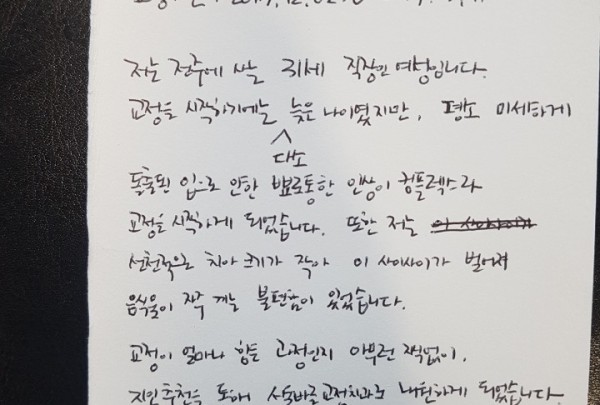 저는 전주에 사는 31세 직장인 여성입니다.
교정을 시작하기에는 늦은 나이였지만, 평소 미세하게
다소
돌출된 입으로 인한 뾰로통한 인상이 컴플렉스라
교정을 시작하게 되었습니다. 또한 저는
선천적으로 치아 크기가 작아 이 사이사이가 벌어져
음식물이 자주 끼는 불편함이 있었습니다.
교정이 얼마나 힘든 과정인지 아무런 지식없이,
지인추천을 통해 교정치과로 내원하게 되었습니다.